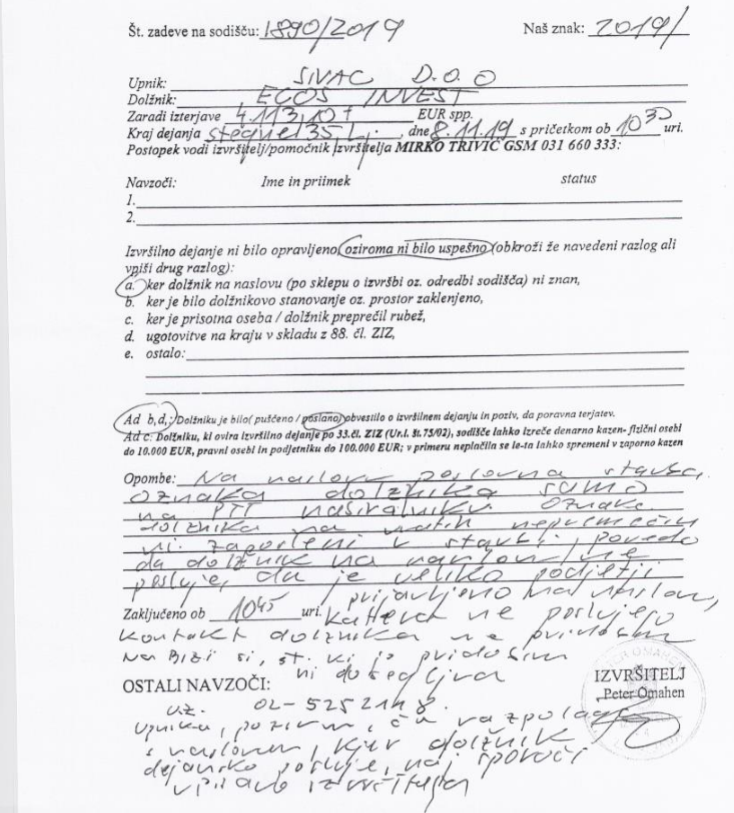 Št. zadeve na sodišču: 1890/2019 Naš znak: 2019/
Upnik: SIVAC D.O.O
Dolžnik: ECOS INVEST
Zaradi izterjave 4.113,10 + EUR spp.
Kraj dejanja Stegne 35 Lj. , dne 8.11.19 s pričetkom ob 10 30 uri.
Postopek vodi izvršitelj/pomočnik izvršitelja MIRKO TRIVIĆ GSM 031 660 333:
Navzoči: Ime in priimek status
1.
2.
Izvršilno dejanje ni bilo opravljeno (oziroma ni bilo uspešno) (obkroži že navedeni razlog ali
vpiši drug razlog):
a. ker dolžnik na naslovu (po sklepu o izvršbi oz. odredbi sodišča) ni znan,
b. ker je bilo dolžnikovo stanovanje oz. prostor zaklenjeno,
c. ker je prisotna oseba / dolžnik preprečil rubež,
d. ugotovitve na kraju v skladu z 88. čl. ZIZ,
e. ostalo:
Ad b,d,: Dolžniku je bilo( puščeno / poslano) obvestilo o izvršilnem dejanju in poziv, da poravna terjatev.
Ad c: Dolžniku, ki ovira izvršilno dejanje po 33.čl. ZIZ (Ur.l. št.75/02), sodišče lahko izreče denarno kazen- fizični osebi
do 10.000 EUR, pravni osebi in podjetniku do 100.000 EUR; v primeru neplačila se le-ta lahko spremeni v zaporno kazen
Opombe: Na naslovu poslovna stavba,
oznaka dolžnika samo
na PTT naslavniku oznake
dolžnika na vratih
ni. zaposleni v stavbi, povedo
da dolžnik na naslovu ne
posluje, da je veliko podjetij
prijavljeno na naslov,
Zaključeno ob 10 45 uri. katera ne poslujejo
kontakt dolžnika ne pridobim
na Bizi si, št. ki jo pridobim
ni dosegljiva
OSTALI NAVZOČI: IZVRŠITELJ
Peter Omahen
02-5252148.
Upnika, pozivam, če razpolaga
z naslovom, kjer dolžnik
dejansko posluje, naj sporoči
v pisarno izvršitelja